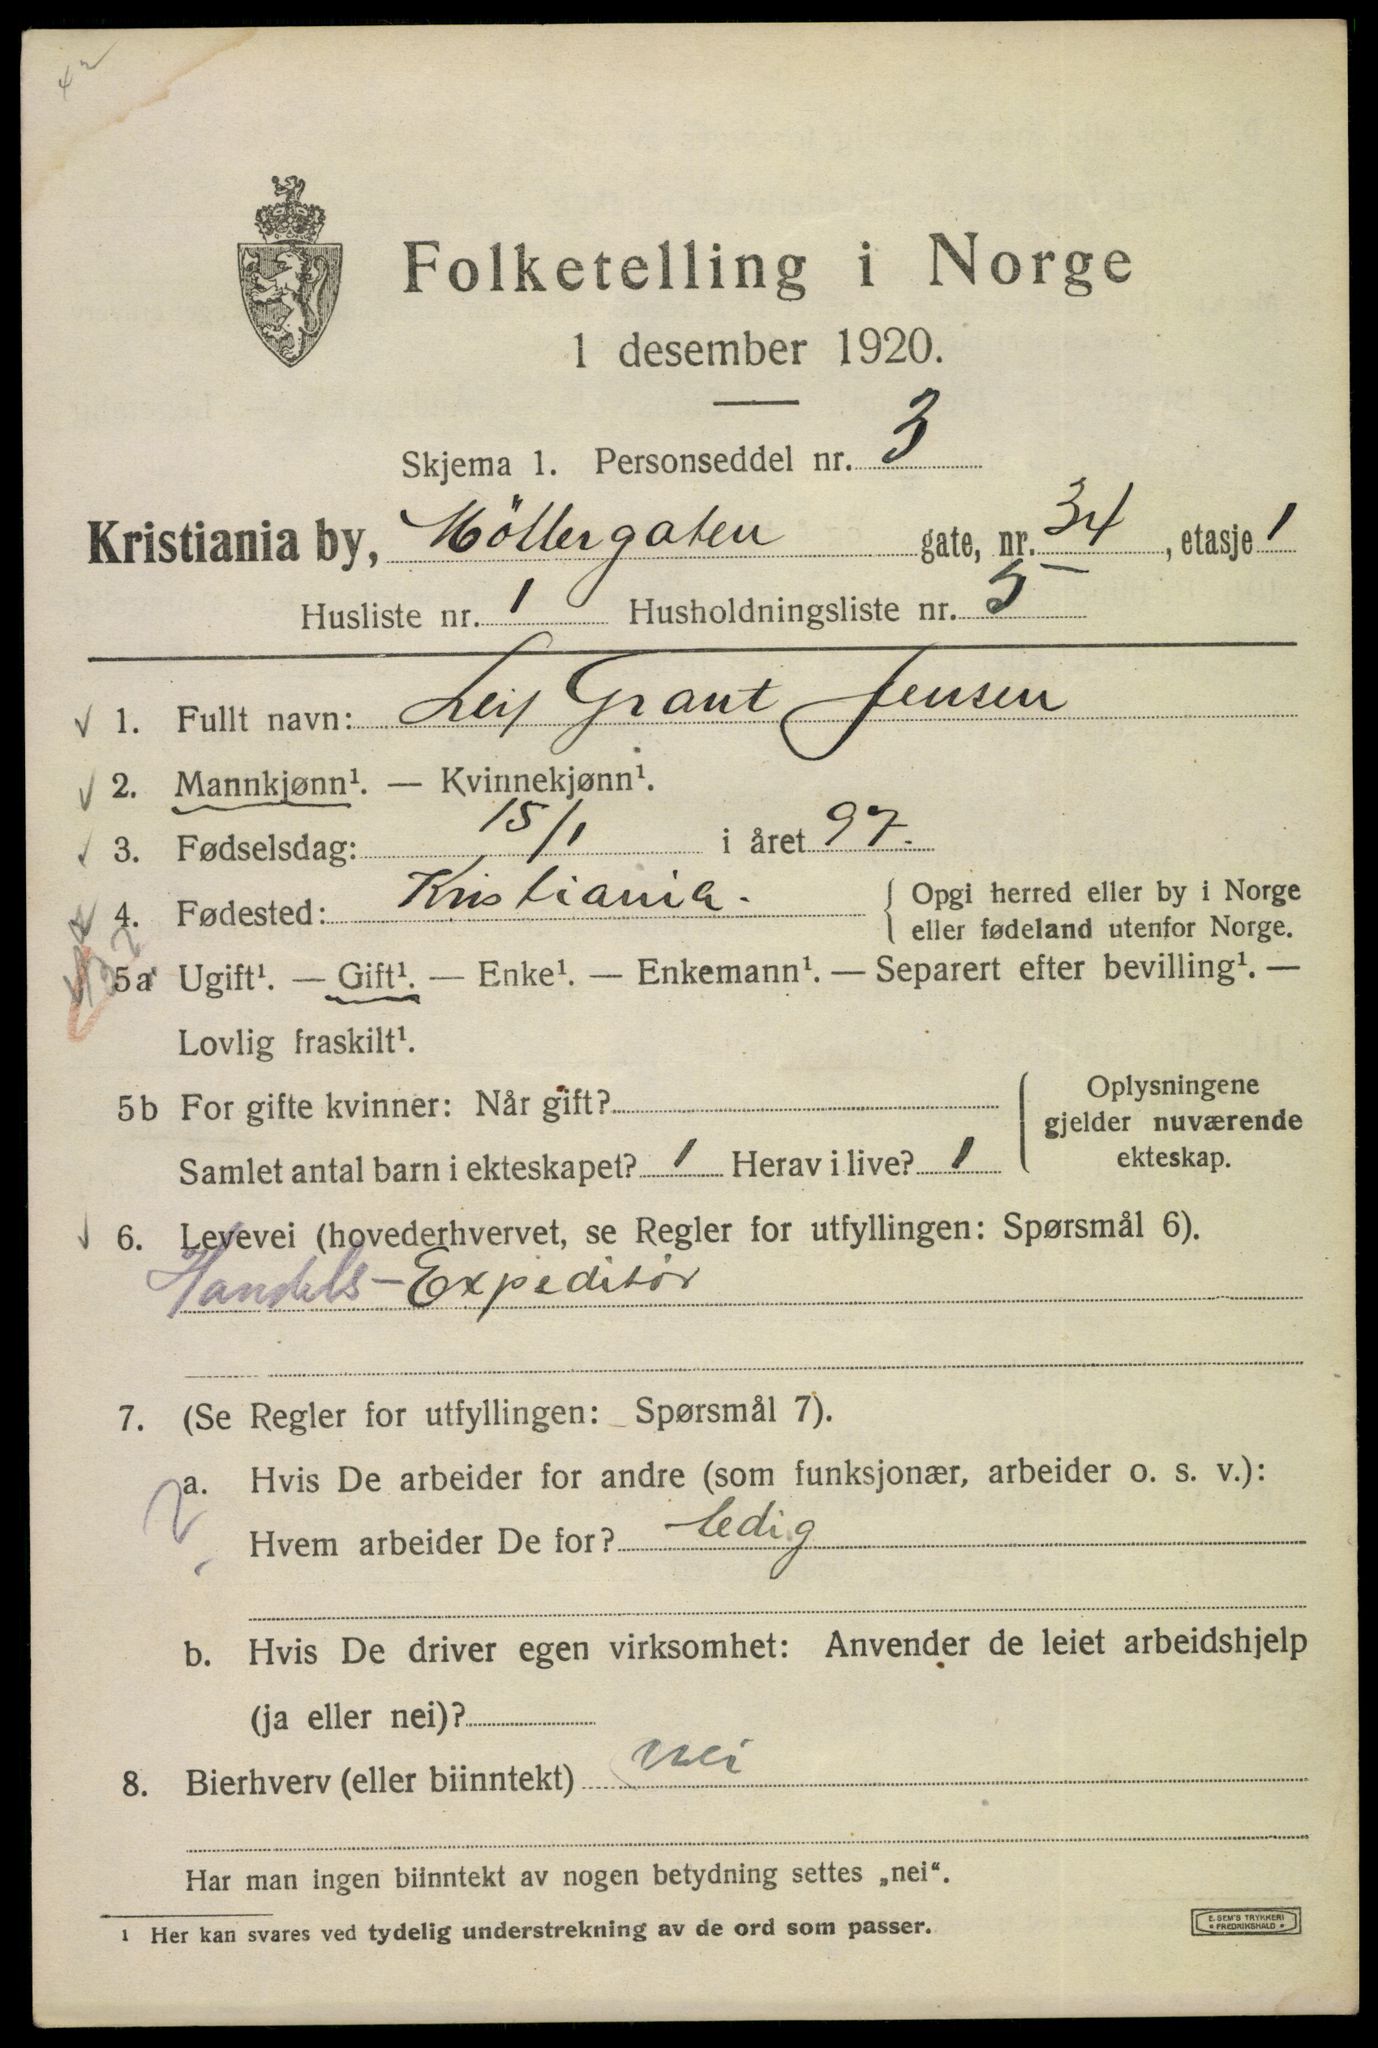 42
Folketelling i Norge
1 desember 1920.
Skjema 1. Personseddel nr. 3
Kristiania by, Möllergaten gate, nr. 34, etasje 1
Husliste nr. 1 Husholdningsliste nr. 5
1. Fullt navn: Leif Grant Jensen
2. Mannkjønn¹. — Kvinnekjønn¹.
3. Fødselsdag: 15/1 i året 97.
4. Fødested: Kristiania. Opgi herred eller by i Norge
eller fødeland utenfor Norge.
5a Ugift¹. — Gift¹. — Enke¹. — Enkemann¹. — Separert efter bevilling¹. —
Lovlig fraskilt¹.
5b For gifte kvinner: Når gift?
Samlet antal barn i ekteskapet? 1 Herav i live? 1
Oplysningene
gjelder nuværende
ekteskap.
6. Levevei (hovederhvervet, se Regler for utfyllingen: Spørsmål 6).
Handels-Expeditör
7. (Se Regler for utfyllingen: Spørsmål 7).
a. Hvis De arbeider for andre (som funksjonær, arbeider o. s. v.):
Hvem arbeider De for? ledig
b. Hvis De driver egen virksomhet: Anvender de leiet arbeidshjelp
(ja eller nei)?
8. Bierhverv (eller biinntekt) nei
Har man ingen biinntekt av nogen betydning settes „nei“.
¹ Her kan svares ved tydelig understrekning av de ord som passer.
E. SEM'S TRYKKERI
* FREDRIKSHALD *